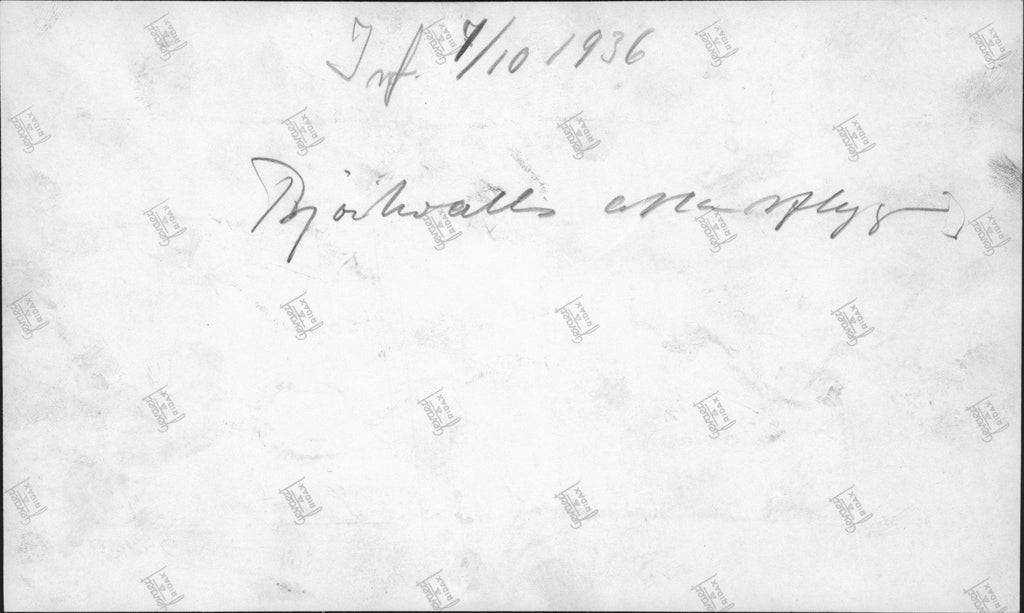 Inf. 7/10 1936
Björkvalls atlantflygn.